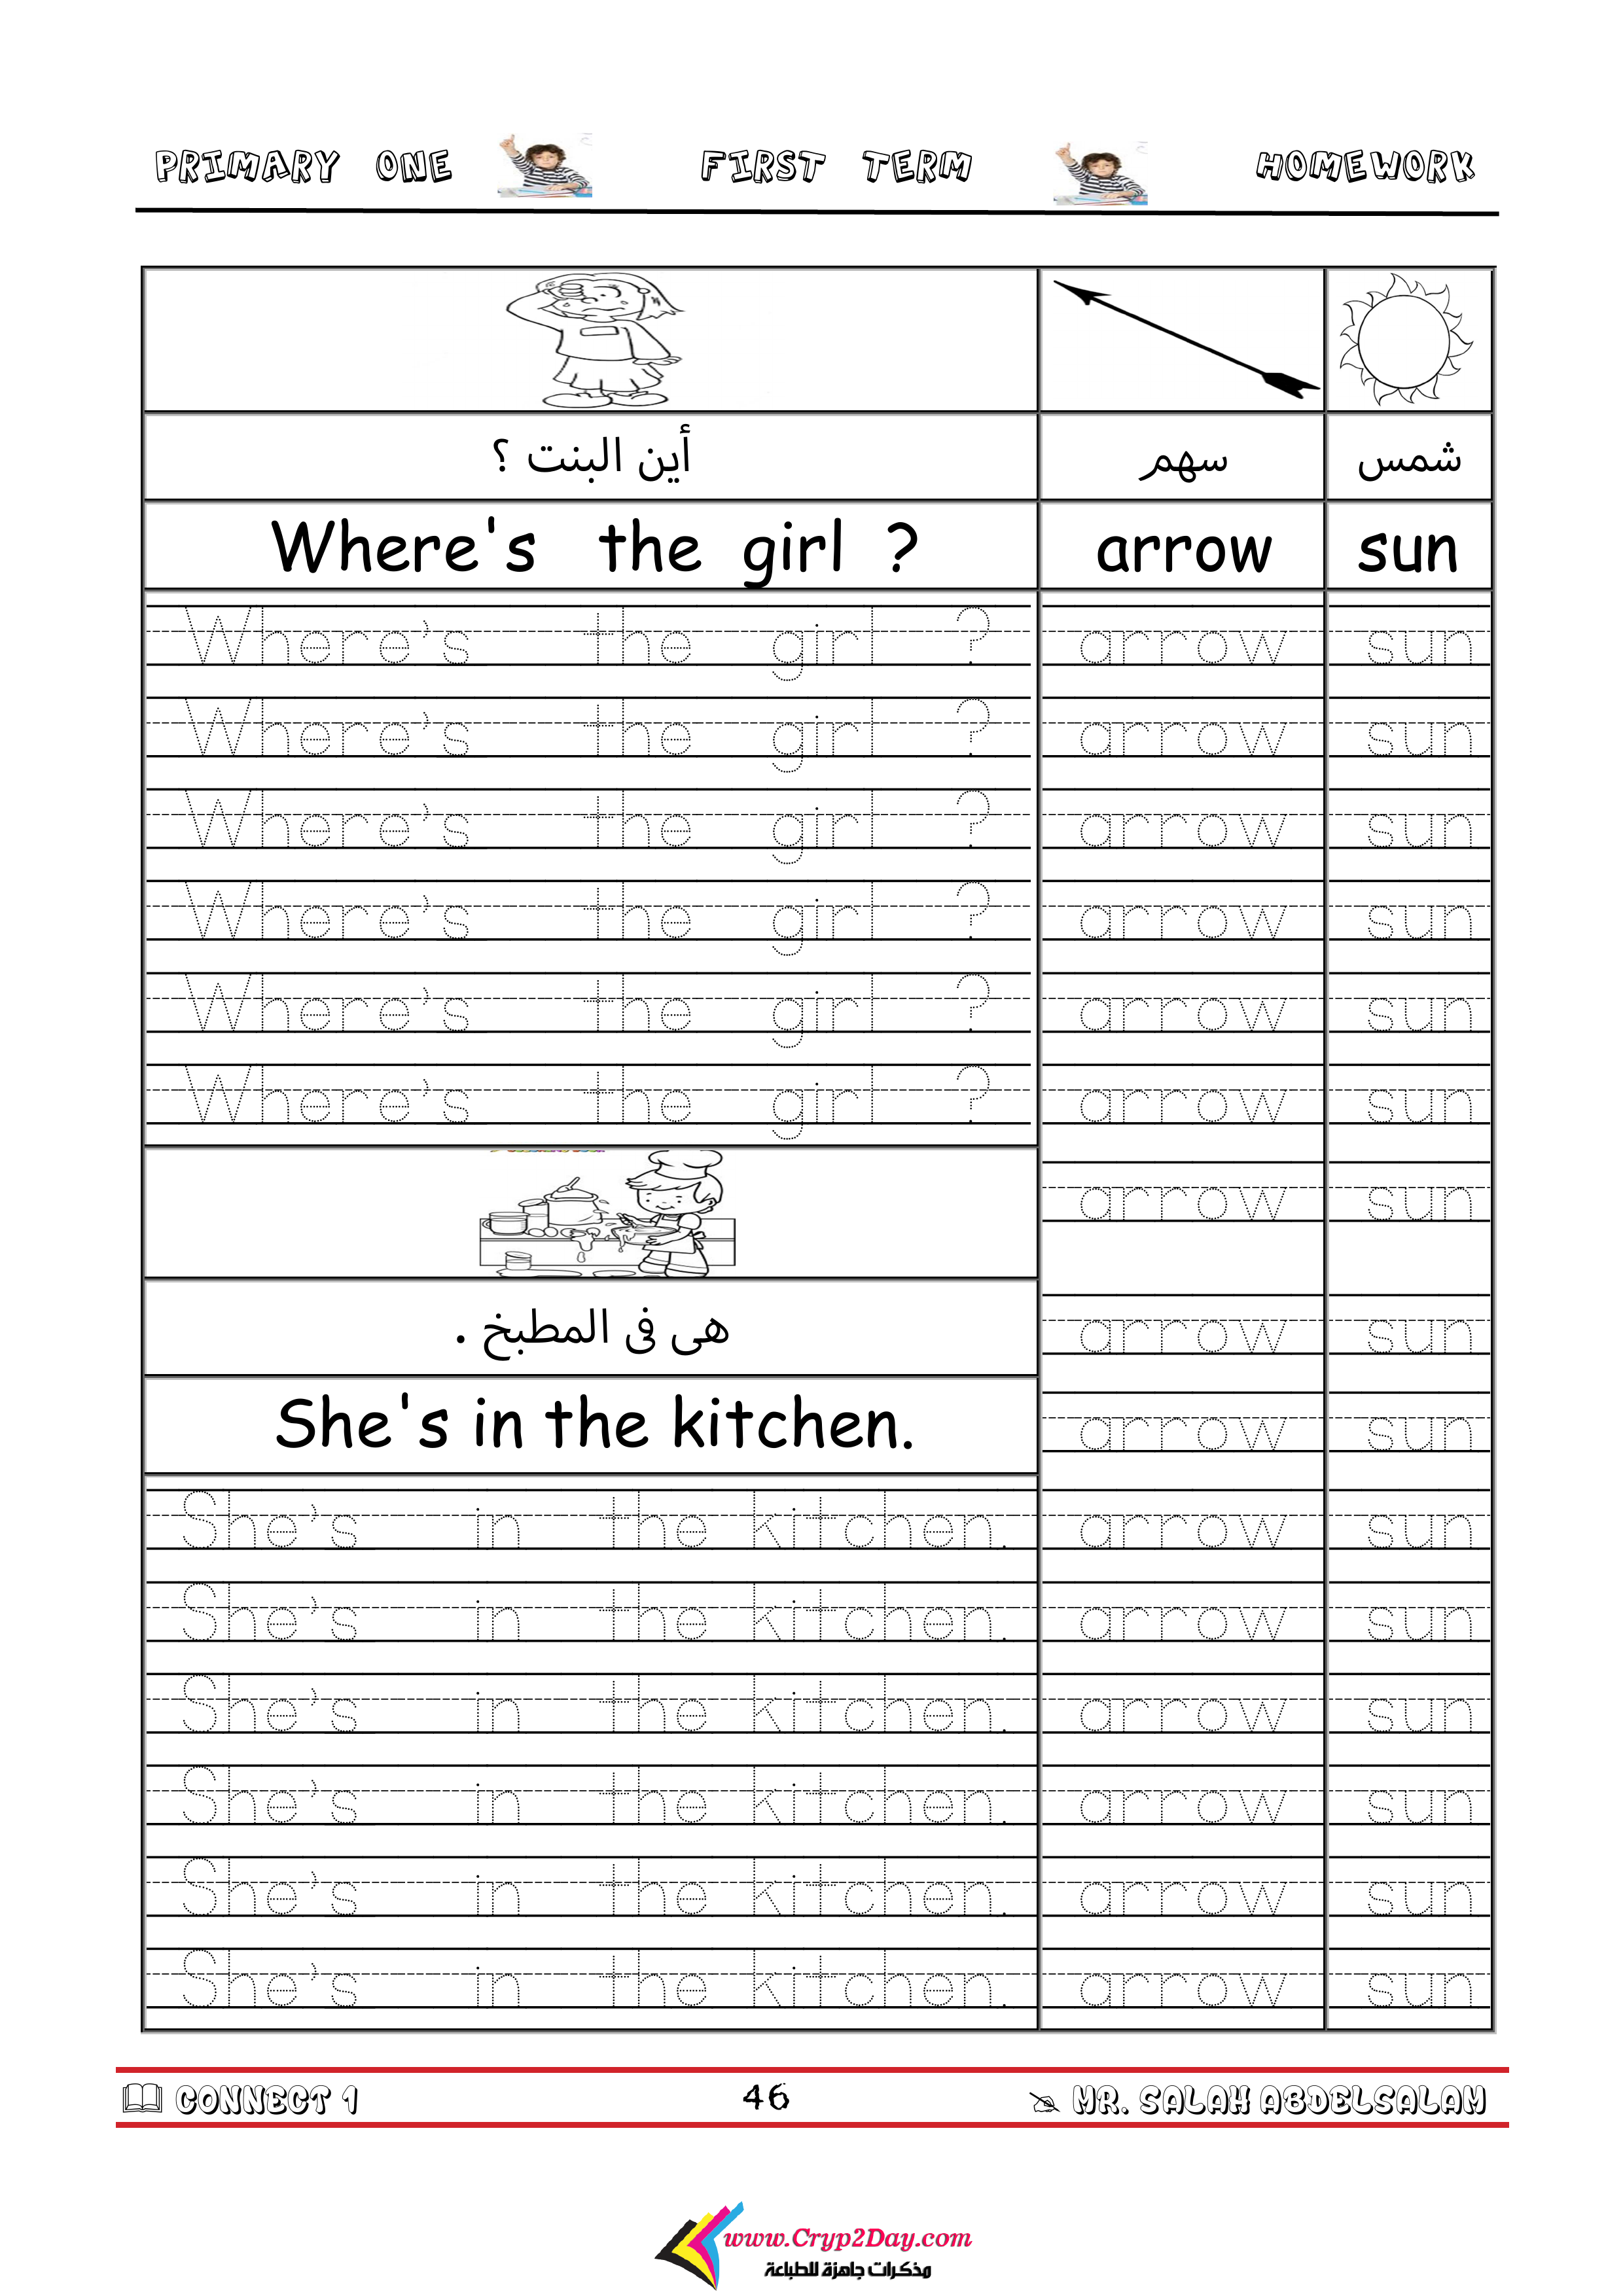 PRIMARY ONE FIRST TERM HOMEWORK
أين البنت ؟ سهم شمس
Where's the girl ? arrow sun
Where's the girl ? arrow sun
Where's the girl ? arrow sun
Where's the girl ? arrow sun
Where's the girl ? arrow sun
Where's the girl ? arrow sun
Where's the girl ? arrow sun
arrow sun
هى فى المطبخ . arrow sun
She's in the kitchen. arrow sun
She's in the kitchen. arrow sun
She's in the kitchen. arrow sun
She's in the kitchen. arrow sun
She's in the kitchen. arrow sun
She's in the kitchen. arrow sun
She's in the kitchen. arrow sun
CONNECT 1 46 MR. SALAH ABDELSALAM
www.Cryp2Day.com
مذكرات جاهزة للطباعة